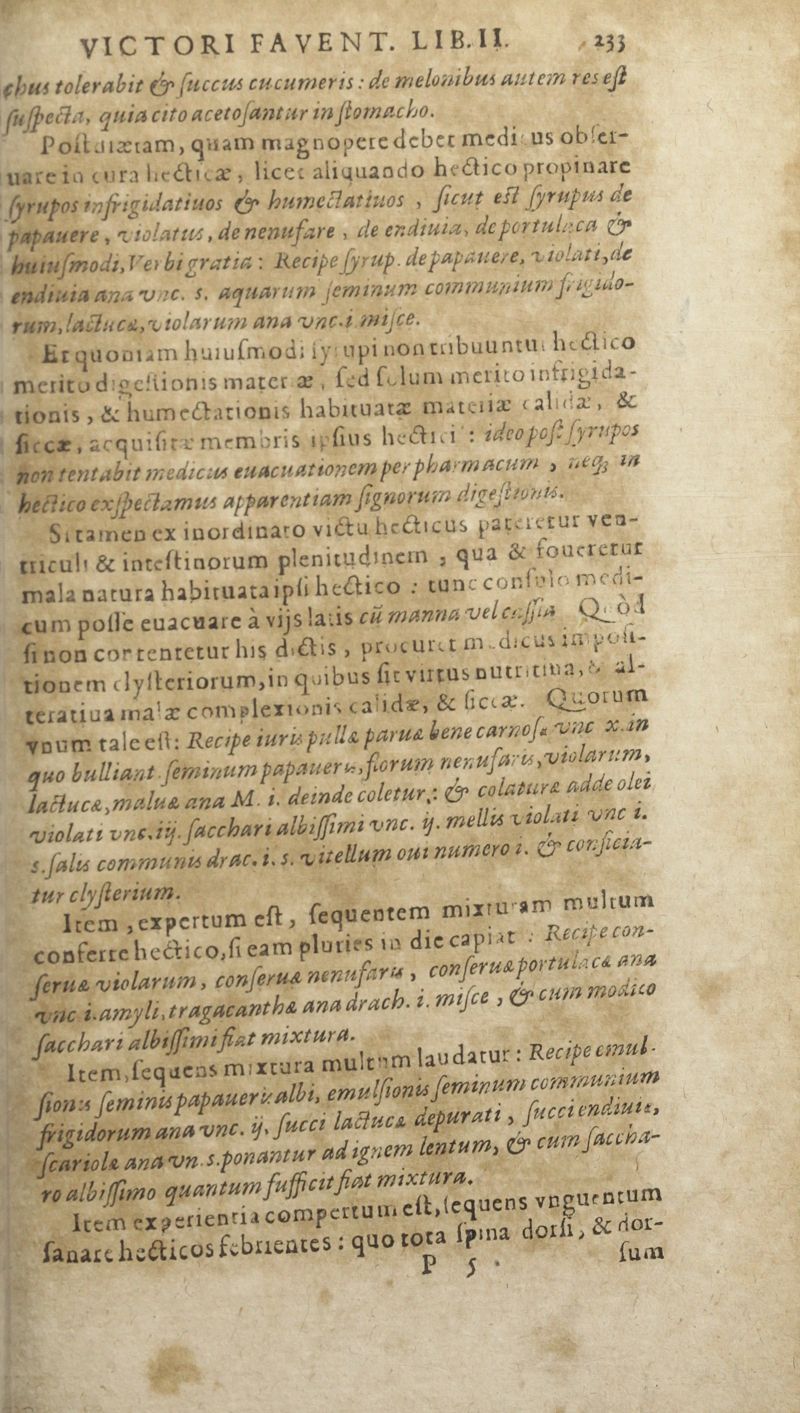 VICTORI FAVENT. LIB.II. 233
chus tolerabit & succus cucumeris : de melonibus autem res est
suspecta, quia cito acetosantur in stomacho.
Post diætam, quam magnopere debet medicus obser-
uare in cura hecticæ, licet aliquando hectico propinare
syrupos infrigidatiuos & humectatiuos , sicut est syrupus de
papauere, violatus, de nenufare , de endiuia, de portulaca &
huiusmodi, Verbi gratia : Recipe syrup. de papauere, violati, de
endiuia ana vnc. s. aquarum seminum communium frigido-
rum, lactucæ, violarum ana vnc. i misce.
Et quoniam huiusmodi syrupi non tribuuntur hectico
merito digestionis materiæ, sed solum merito infrigida-
tionis, & humectationis habituatæ materiæ calidæ, &
siccæ, acquisitæ membris ipsius hectici : ideo post syrupos
non tentabit medicus euacuationem per pharmacum , neq; in
hectico exspectamus apparentiam signorum digestionis.
Si tamen ex inordinato victu hecticus pateretur ven-
triculi & intestinorum plenitudinem , qua & foueretur
mala natura habituata ipsi hectico : tunc consulo medi-
cum posse euacuare à vijs latis cũ manna vel cassia. Quod
si non contentetur his dictis, procuret medicus imposi-
tionem clysteriorum, in quibus sit virtus nutritiua, & al-
teratiua malæ complexionis calidæ, & siccæ. Quorum
vnum tale est: Recipe iuris pullæ paruæ bene carnosæ vnc x. in
quo bulliant seminum papaueris, florum nenufaris, violarum,
lactucæ, maluæ ana M. i. deinde coletur,: & colaturæ adde olei
violati vnc. iij. sacchari albissimi vnc. ij. mellis violati vnc i.
s. salis communis drac. i. s. vitellum oui numero i. & conficia-
tur clysterium.
Item , expertum est, sequentem mixturam multum
conferre hectico, si eam pluries in die capiat : Recipe con-
seruæ violarum, conseruæ nenufaris, conseruæ portulacæ ana
vnc i. amyli, tragacanthæ ana drach. i. misce , & cum modico
sacchari albissimi fiat mixtura.
Item, sequens mixtura multum laudatur : Recipe emul-
sionis seminis papaueris albi, emulsionis seminum communium
frigidorum ana vnc. ij. succi lactucæ depurati , succi endiuiæ,
scariolæ ana vn. s. ponantur ad ignem lentum, & cum saccha-
ro albissimo quantum sufficit fiat mixtura.
Item experientia compertum est, sequens vnguentum
sanare hecticos febrientes : quo tota spina dorsi, & dor-
P 5 sum